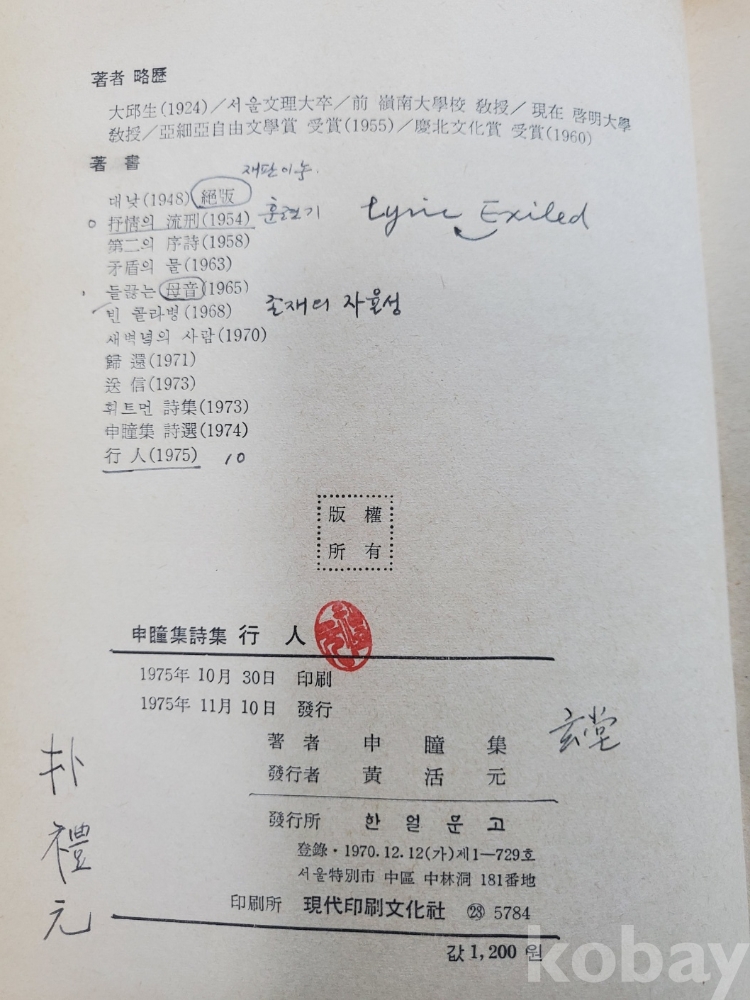 著者 略歷
大邱生(1924)／서울文理大卒／前 嶺南大學校 敎授／現在 啓明大學
敎授／亞細亞自由文學賞 受賞(1955)／慶北文化賞 受賞(1960)
著 書
대낮(1948) 絕版
抒情의 流刑(1954) Lyric Exiled
第二의 序詩(1958)
矛盾의 물(1963)
들끓는 母音(1965)
빈 콜라병(1968) 존재의 자율성
새벽녘의 사람(1970)
歸 還(1971)
送 信(1973)
휘트먼 詩集(1973)
申瞳集 詩選(1974)
行 人(1975) 10
版 權
所 有
申瞳集詩集 行 人
1975年 10月 30日 印刷
1975年 11月 10日 發行
著 者 申 瞳 集 玄堂
發行者 黃 活 元
發行所 한 얼 문 고
登錄·1970.12.12(가)제1—729호
서울特別市 中區 中林洞 181番地
印刷所 現代印刷文化社 ㉘ 5784
값 1,200 원
朴禮元
kobay